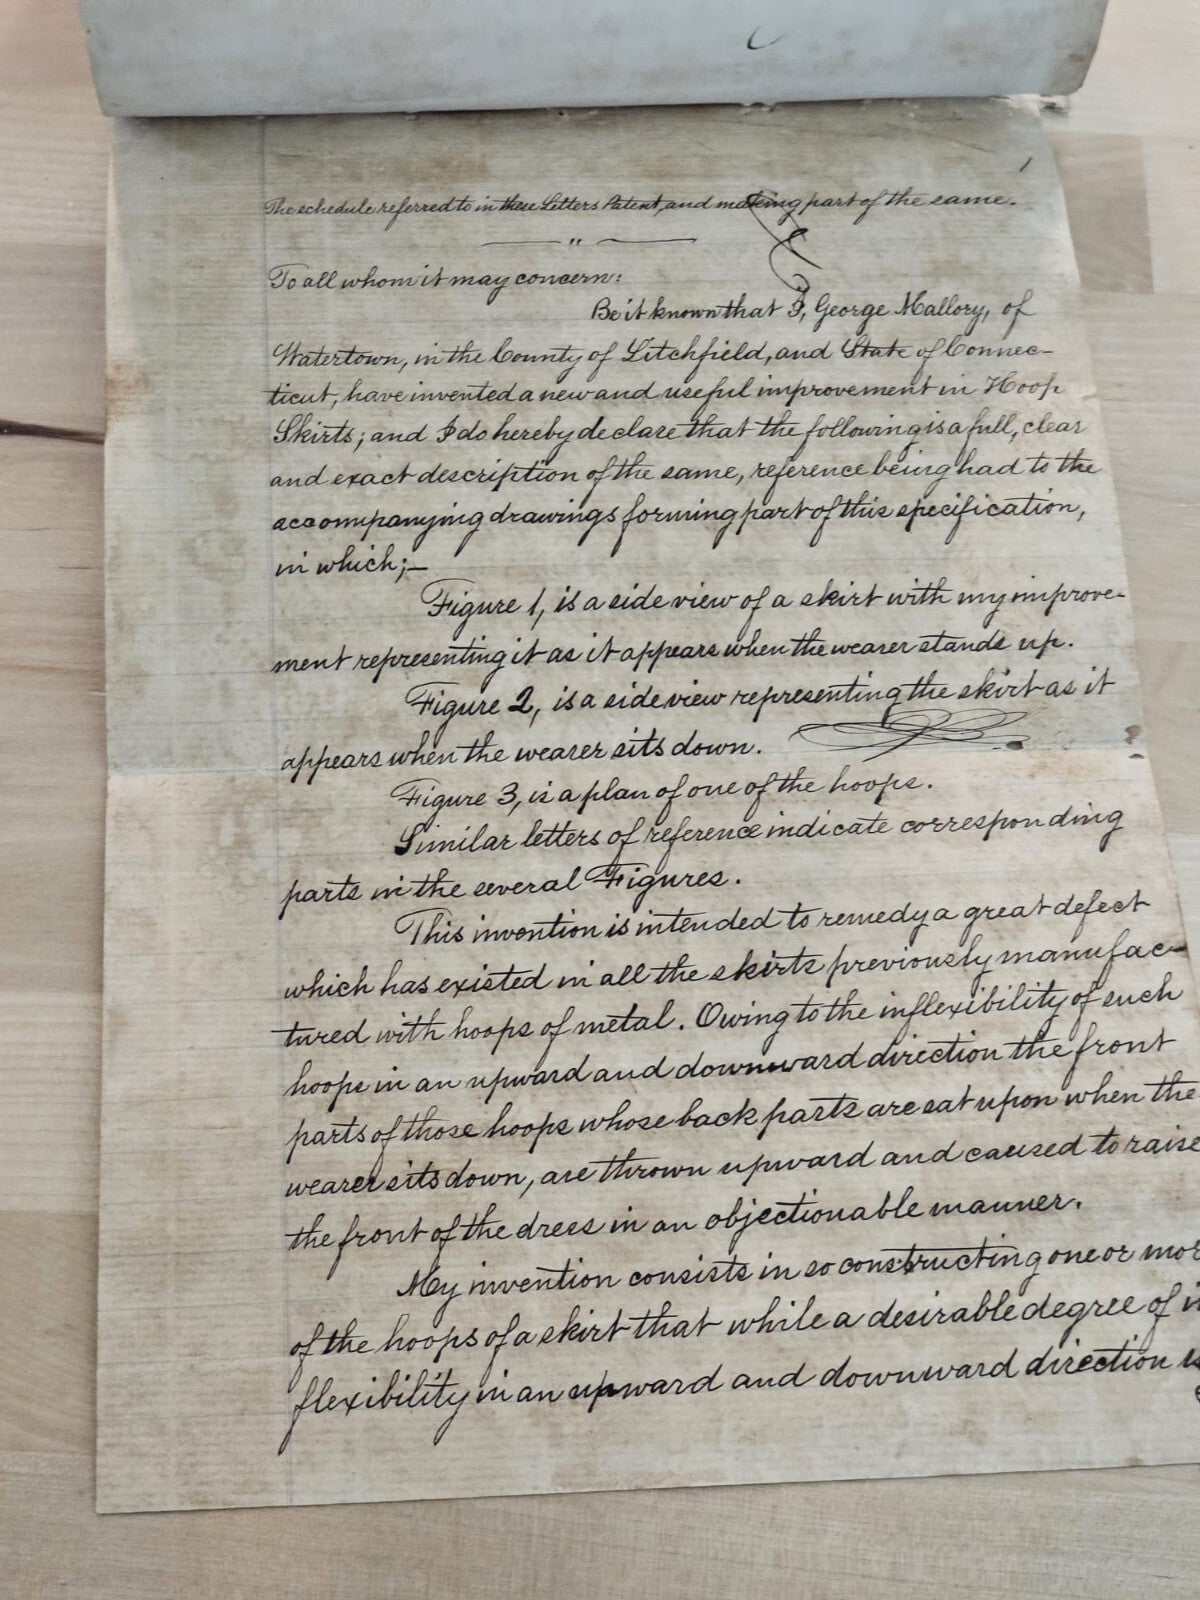 1
The schedule referred to in these Letters Patent, and making part of the same.
"
To all whom it may concern:
Be it known that I, George Mallory, of
Watertown, in the County of Litchfield, and State of Connec-
ticut, have invented a new and useful improvement in Hoop
Skirts; and I do hereby declare that the following is a full, clear
and exact description of the same, reference being had to the
accompanying drawings forming part of this specification,
in which;—
Figure 1, is a side view of a skirt with my improve-
ment representing it as it appears when the wearer stands up.
Figure 2, is a side view representing the skirt as it
appears when the wearer sits down.
Figure 3, is a plan of one of the hoops.
Similar letters of reference indicate corresponding
parts in the several Figures.
This invention is intended to remedy a great defect
which has existed in all the skirts previously manufac-
tured with hoops of metal. Owing to the inflexibility of such
hoops in an upward and downward direction the front
parts of those hoops whose back parts are sat upon when the
wearer sits down, are thrown upward and caused to raise
the front of the dress in an objectionable manner.
My invention consists in so constructing one or mor
of the hoops of a skirt that while a desirable degree of in
flexibility in an upward and downward direction is